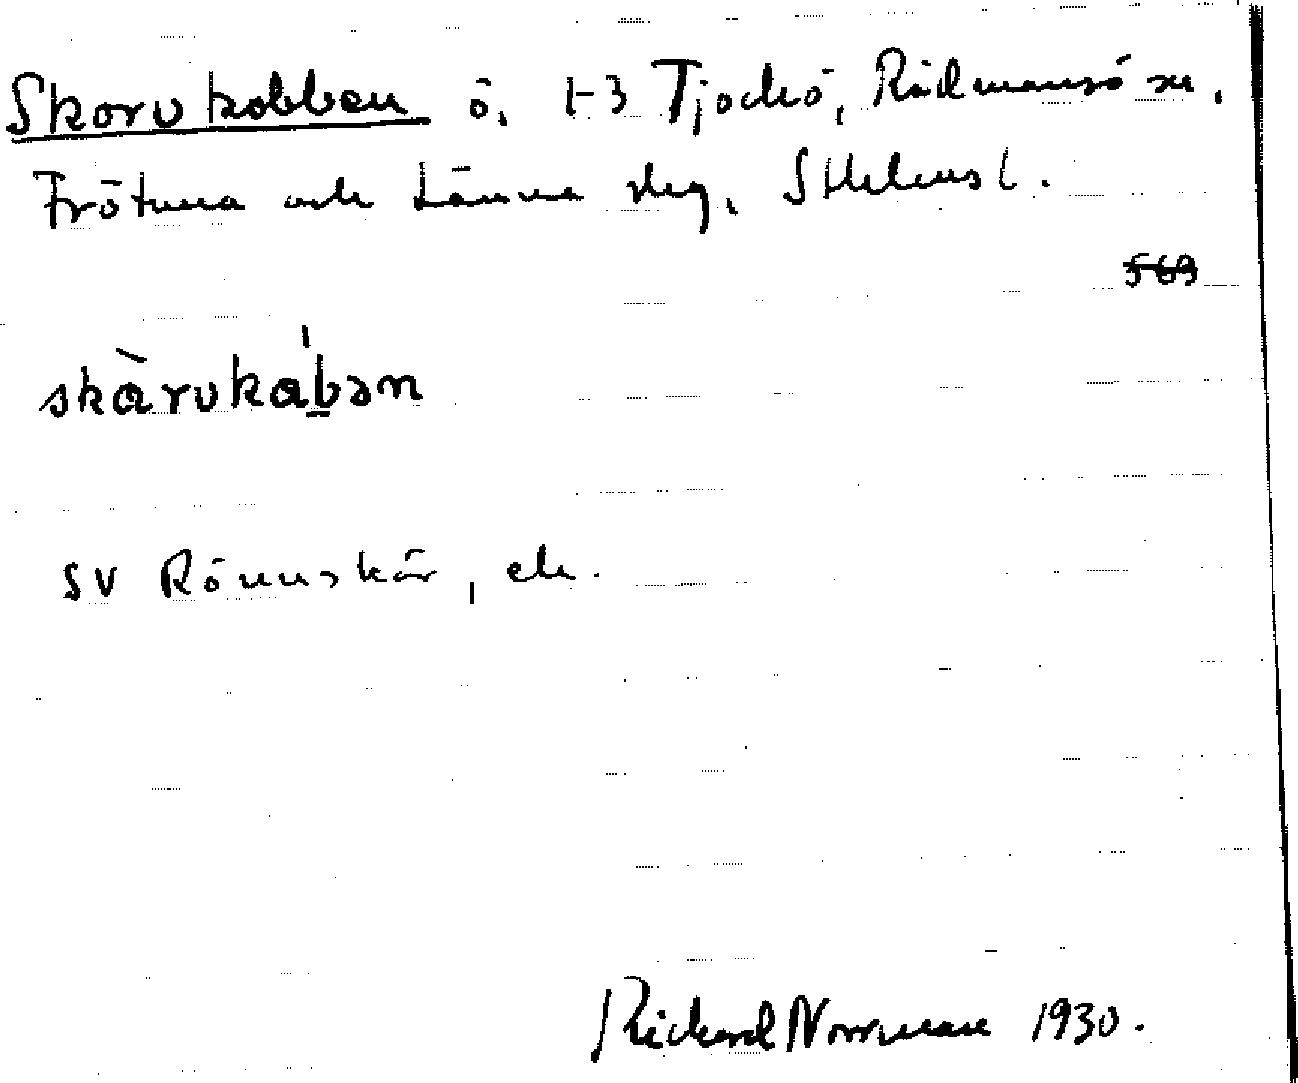 Skorvkobben ö. 1-3 Tjockö, Rådmansö sn.
Frötuna och Länna skg, Sthlms l.
569
skàrvkábən
SV Rönnskär, ek.
Rickard Norrman 1930.